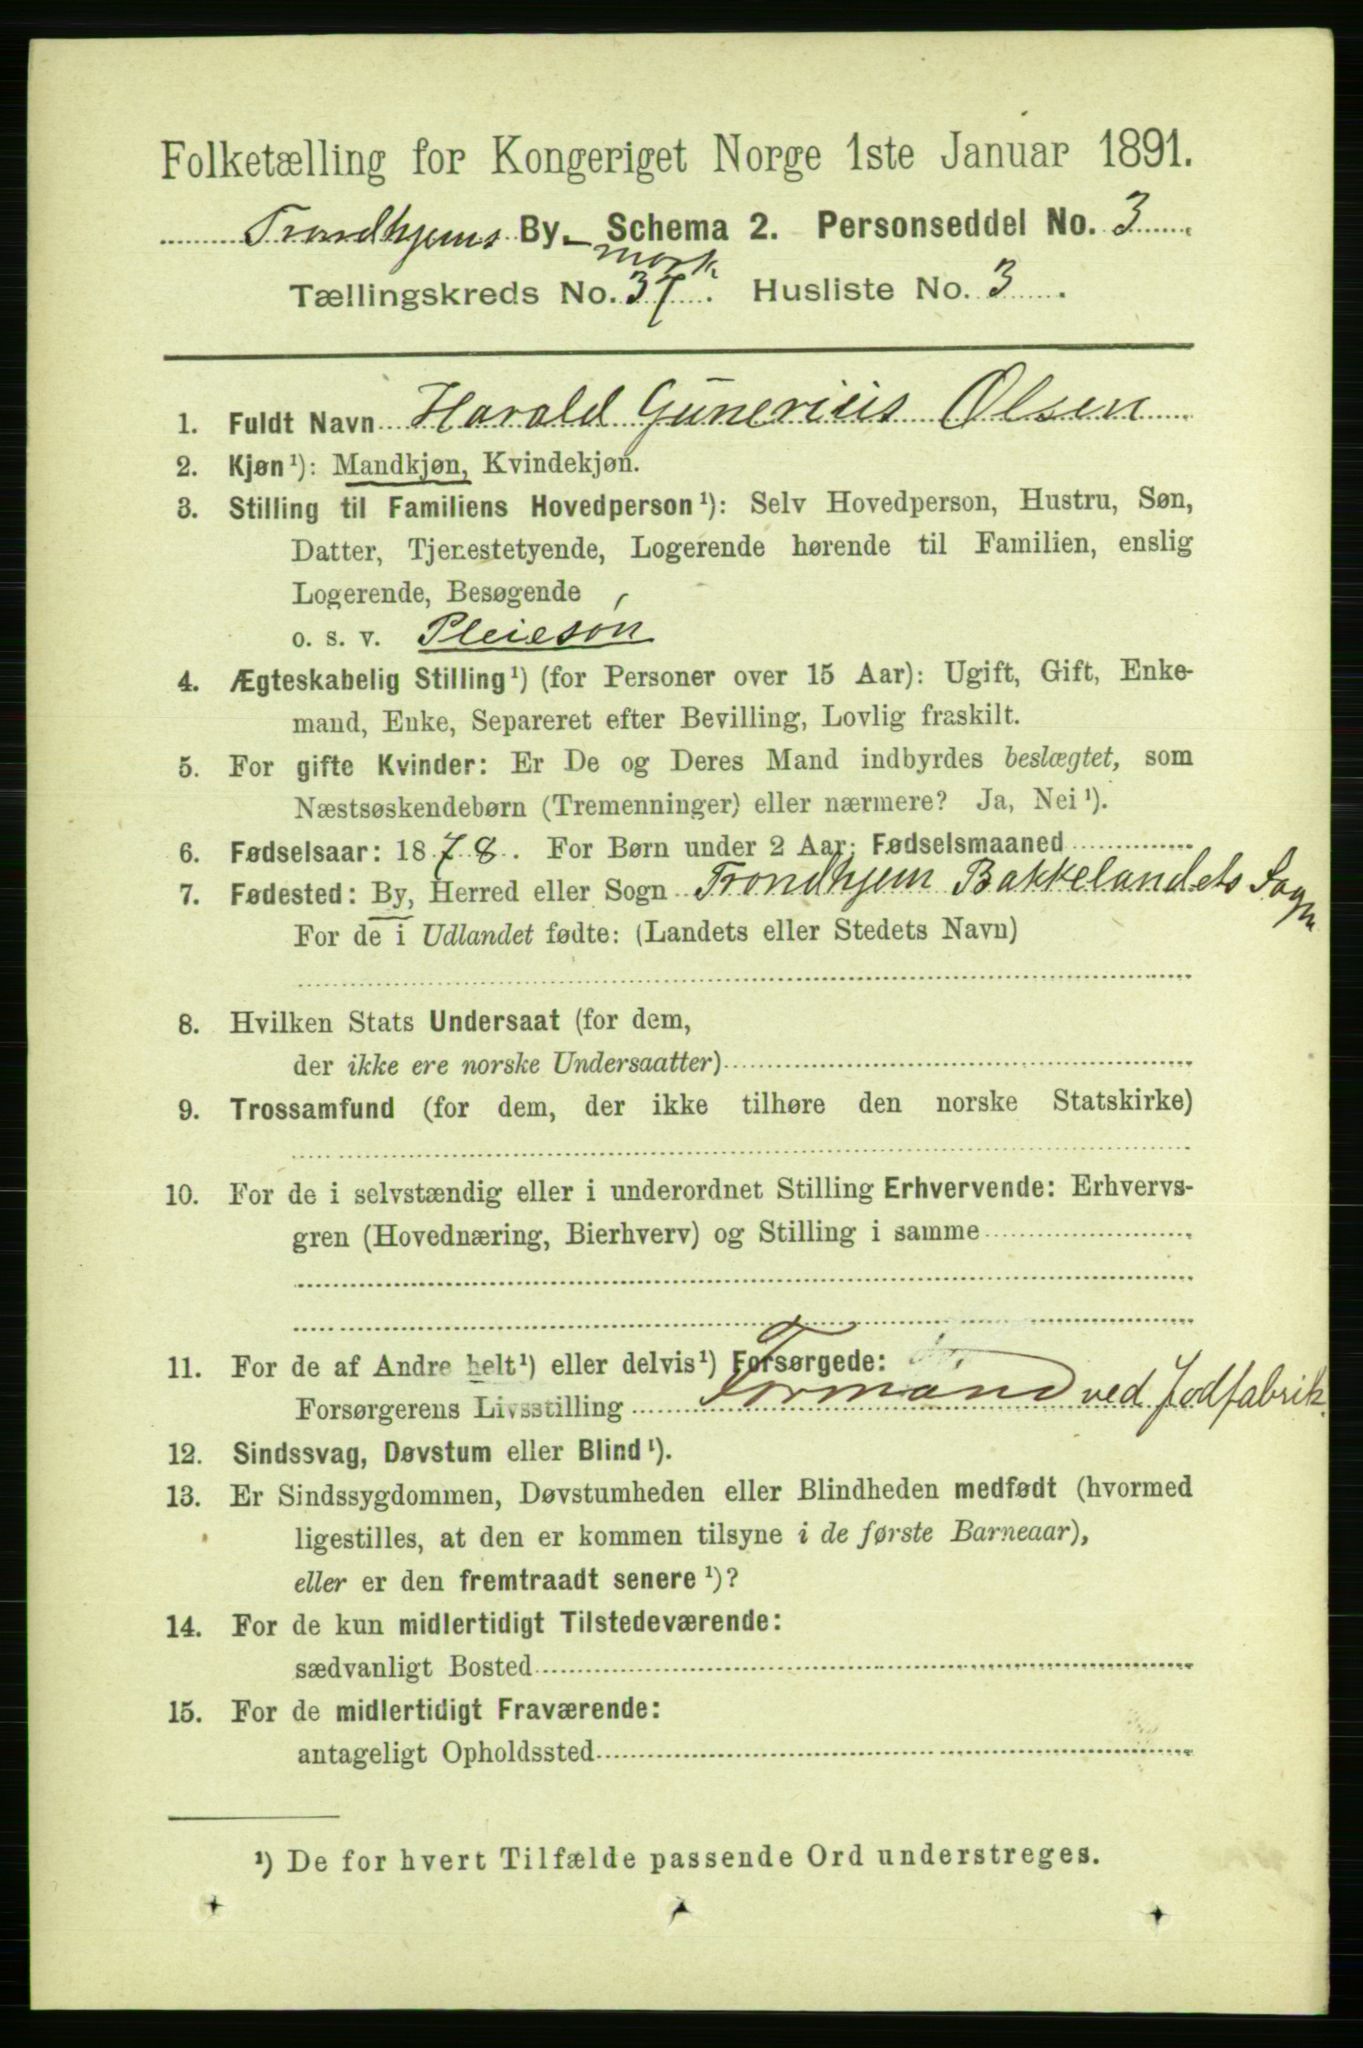 Folketælling for Kongeriget Norge 1ste Januar 1891.
Trondhjems By- Schema 2. Personseddel No. 3.
mark
Tællingskreds No. 37. Husliste No. 3.
1. Fuldt Navn Harald Gunerius Olsen
2. Kjøn¹): Mandkjøn, Kvindekjøn.
3. Stilling til Familiens Hovedperson¹): Selv Hovedperson, Hustru, Søn,
Datter, Tjenestetyende, Logerende hørende til Familien, enslig
Logerende, Besøgende
o. s. v. Pleiesøn
4. Ægteskabelig Stilling¹) (for Personer over 15 Aar): Ugift, Gift, Enke-
mand, Enke, Separeret efter Bevilling, Lovlig fraskilt.
5. For gifte Kvinder: Er De og Deres Mand indbyrdes beslægtet, som
Næstsøskendebørn (Tremenninger) eller nærmere? Ja, Nei¹).
6. Fødselsaar: 1878. For Børn under 2 Aar: Fødselsmaaned
7. Fødested: By, Herred eller Sogn Trondhjem Bakkelandets Sogn
For de i Udlandet fødte: (Landets eller Stedets Navn)
8. Hvilken Stats Undersaat (for dem,
der ikke ere norske Undersaatter)
9. Trossamfund (for dem, der ikke tilhøre den norske Statskirke)
10. For de i selvstændig eller i underordnet Stilling Erhvervende: Erhvervs-
gren (Hovednæring, Bierhverv) og Stilling i samme
11. For de af Andre helt¹) eller delvis¹) Forsørgede:
Forsørgerens Livsstilling Formand ved Jodfabrik.
12. Sindssvag, Døvstum eller Blind¹).
13. Er Sindssygdommen, Døvstumheden eller Blindheden medfødt (hvormed
ligestilles, at den er kommen tilsyne i de første Barneaar),
eller er den fremtraadt senere¹)?
14. For de kun midlertidigt Tilstedeværende:
sædvanligt Bosted
15. For de midlertidigt Fraværende:
antageligt Opholdssted
¹) De for hvert Tilfælde passende Ord understreges.